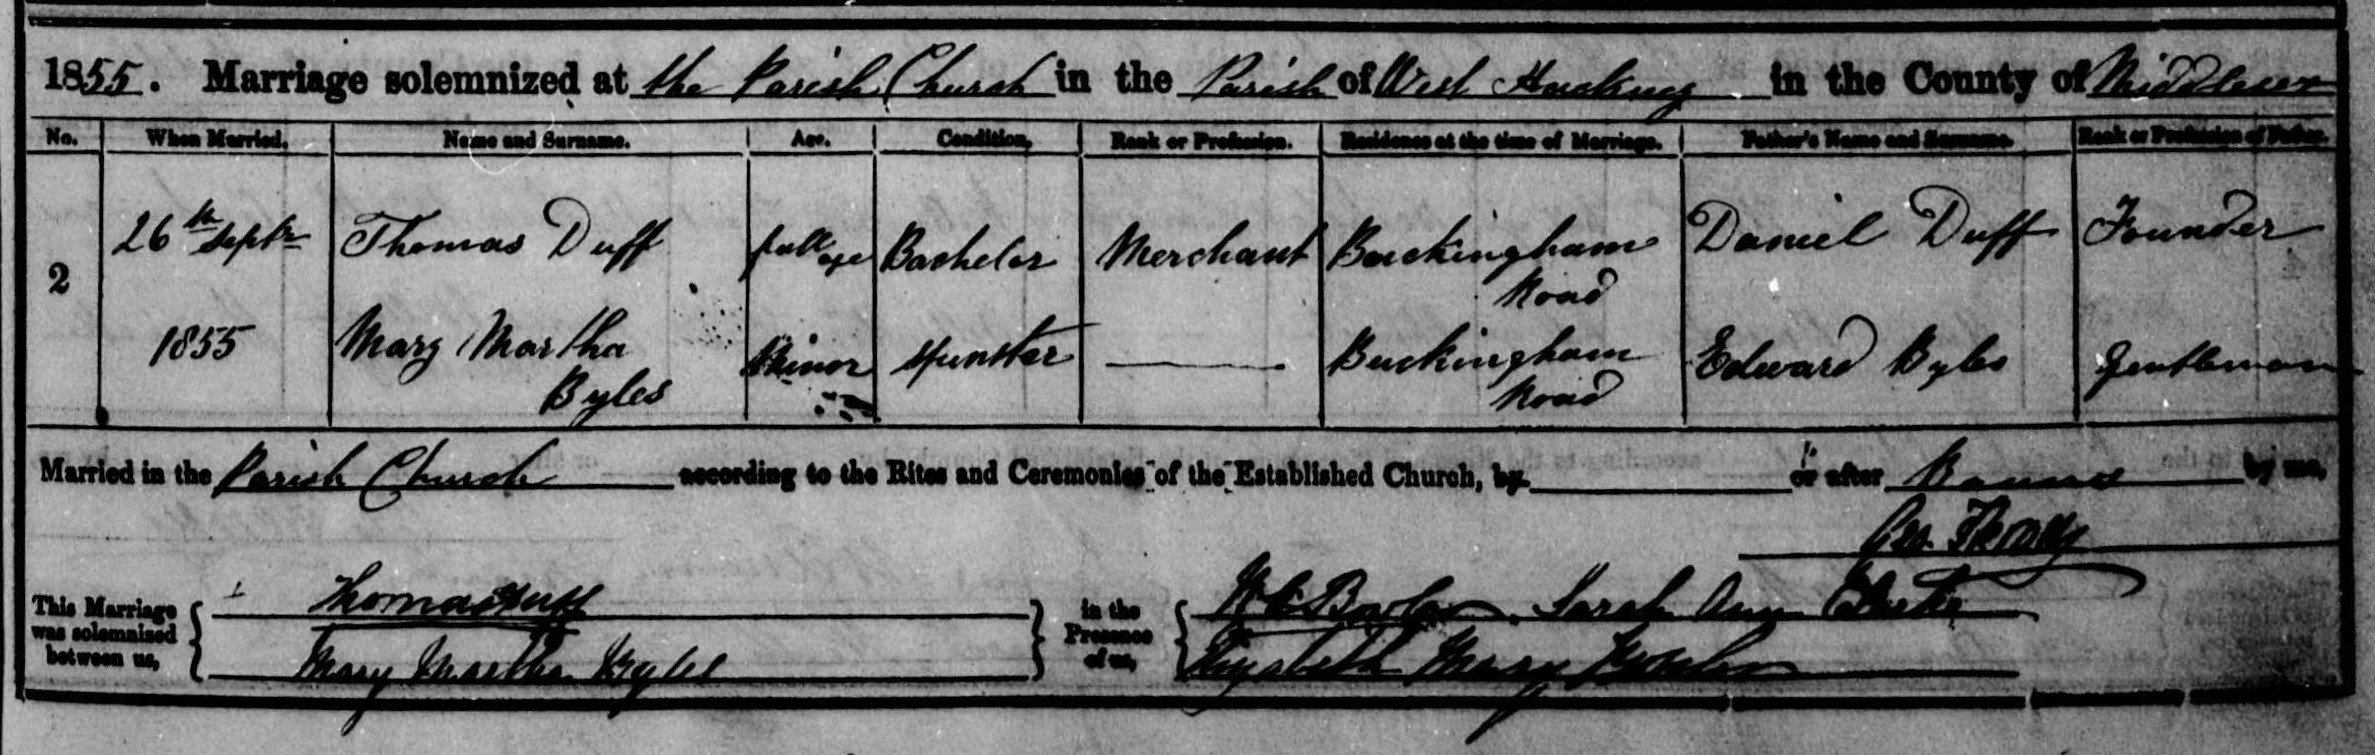 1855. Marriage solemnized at the Parish Church in the Parish of West Hackney in the County of Middlesex
No. When Married. Name and Surname. Age. Condition. Rank or Profession. Residence at the time of Marriage. Father's Name and Surname. Rank or Profession of Father.
2 26th Septr Thomas Duff full age Bachelor Merchant Buckingham Road Daniel Duff Founder
1855 Mary Martha Byles Minor Spinster Buckingham Road Edward Byles Gentleman
Married in the Parish Church according to the Rites and Ceremonies of the Established Church, by or after Banns by me,
Geo.
This Marriage was solemnized between us, Thomas Duff in the Presence of us, Sarah Ann
Mary Martha Byles Elizabeth Mary